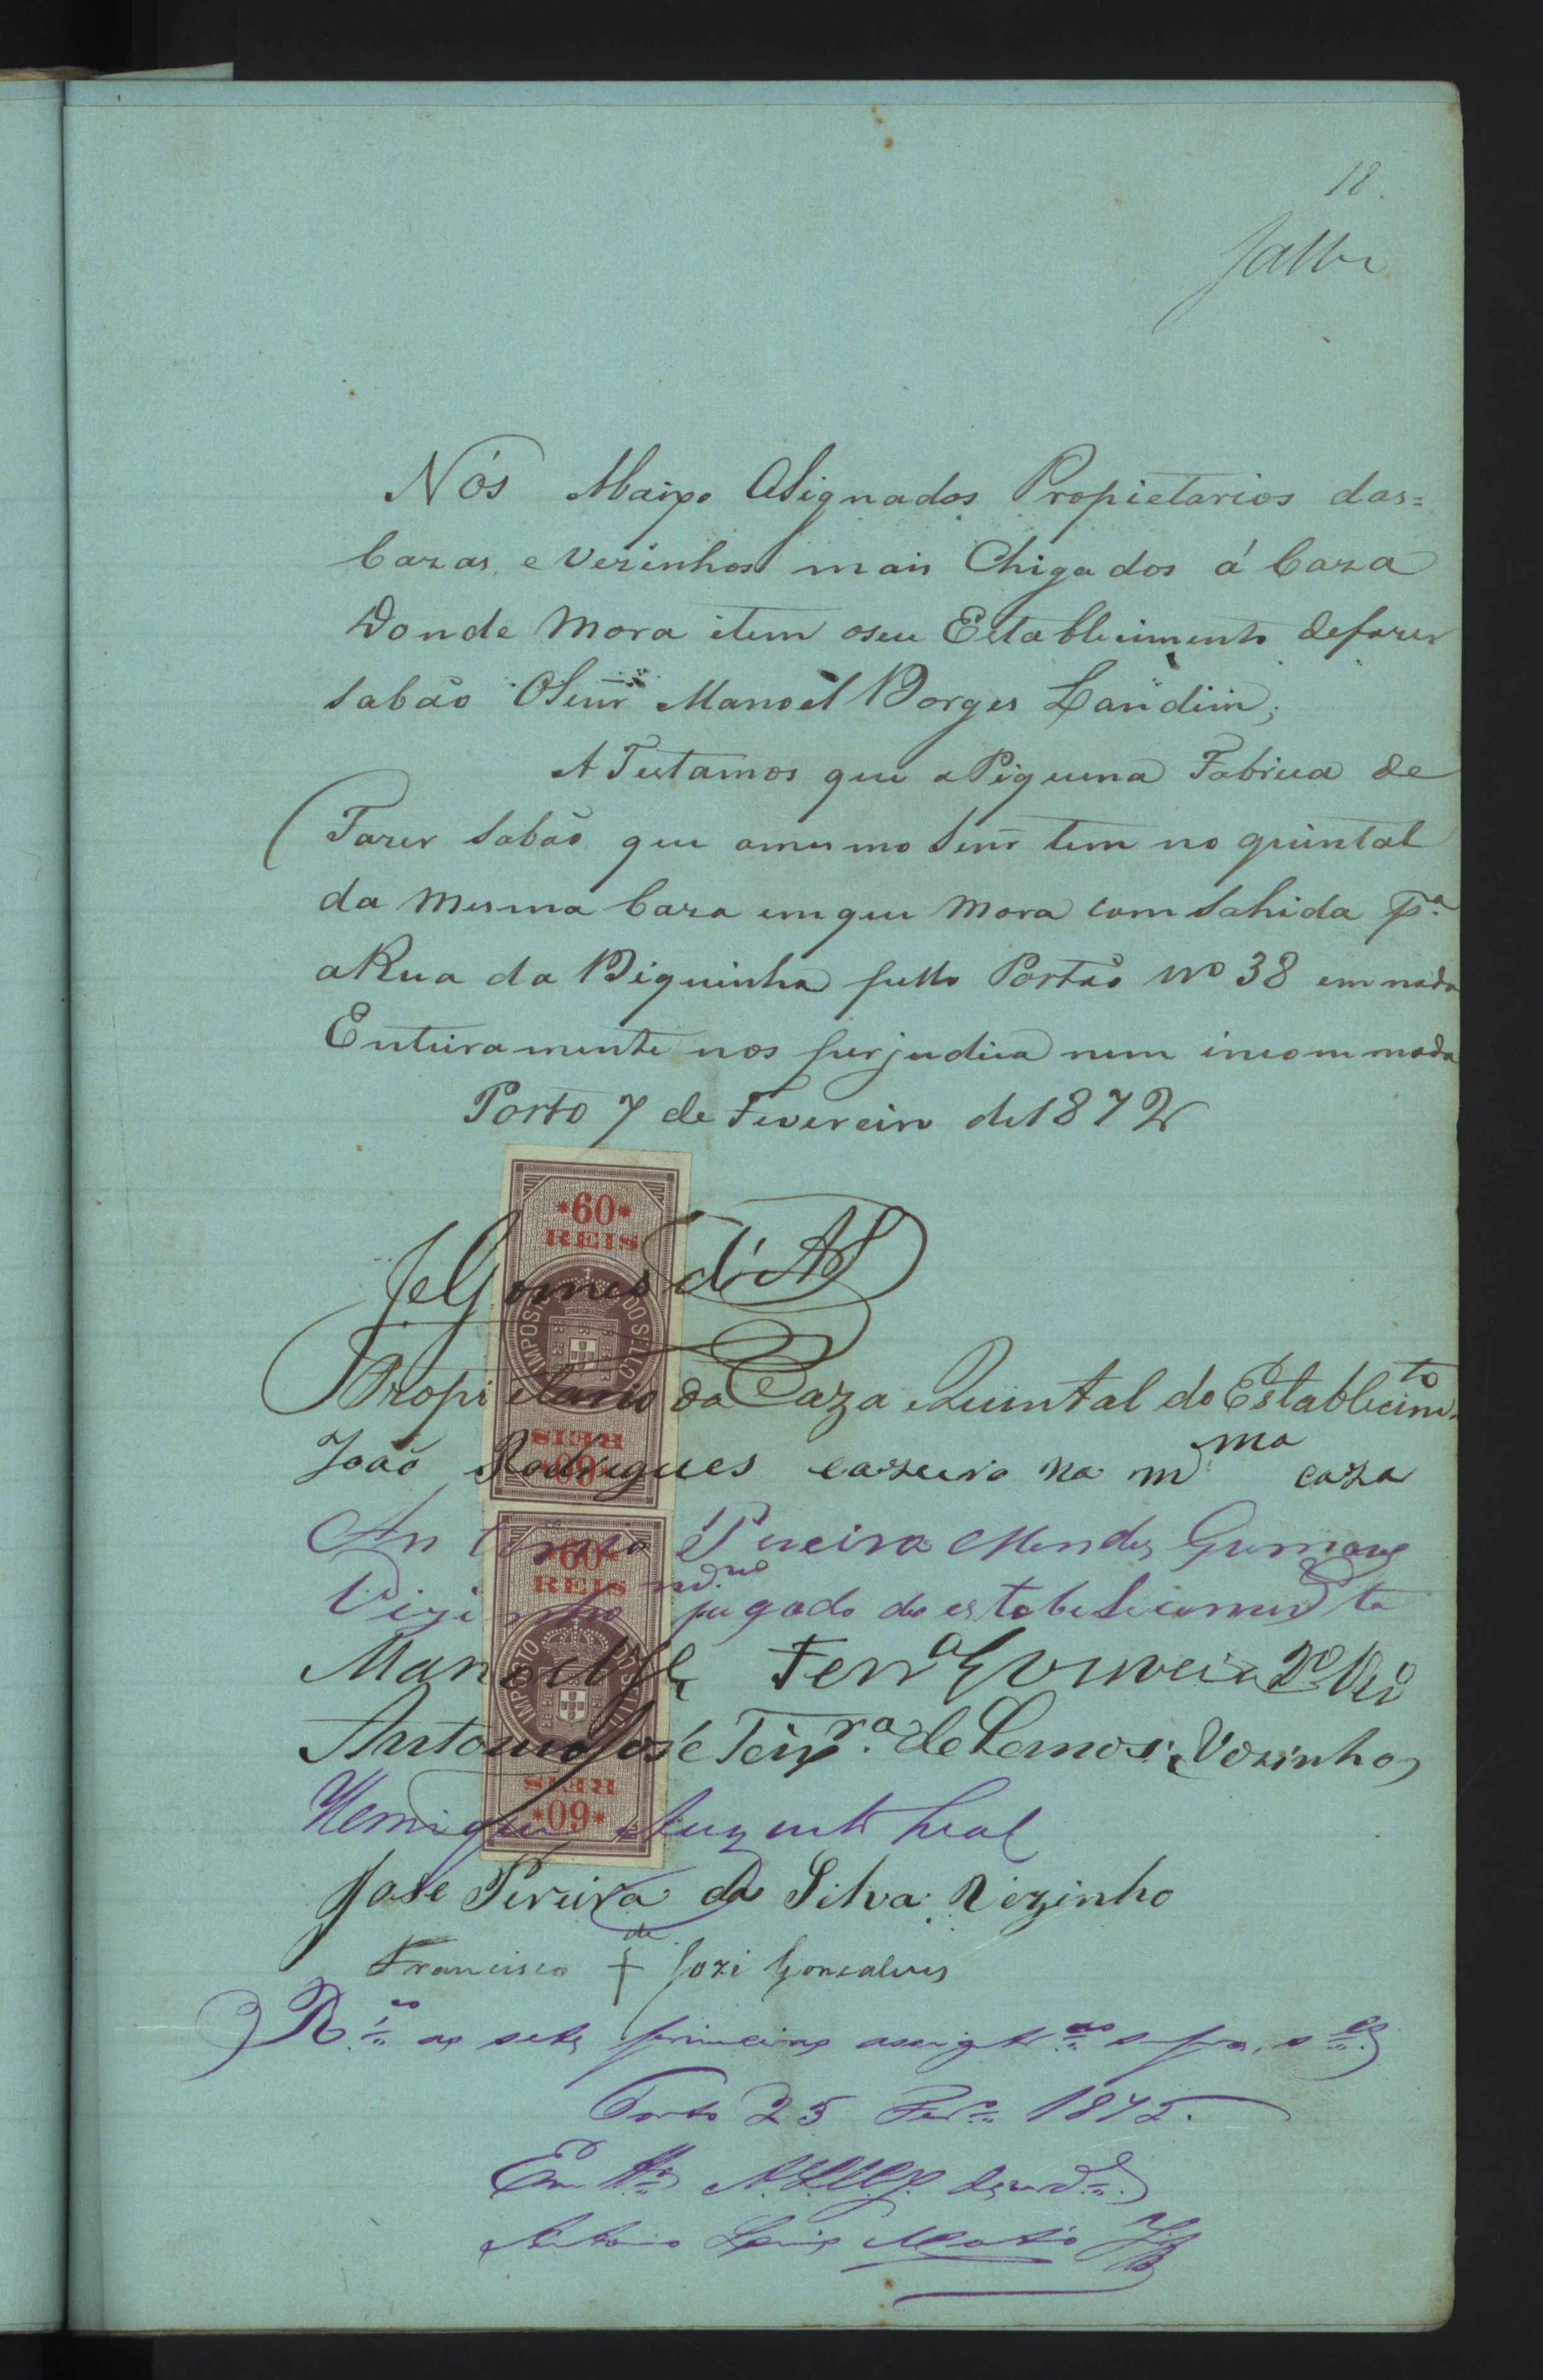 18
Nós Abaixo Asignados Propietarios das=
Cazas, e Vezinhos mais Chigados á Caza
Donde Mora item oseu Establecimento defazer
Sabão OSenr Manoel Borges Landim,
ATestamos que aPiquena Fabrica de
Fazer Sabão que omesmo Senr tem no quintal
da Mesma Caza emque Mora com Sahida Pª
aRua da Biquinha pello Portão Nº 38 em nada
Enteiramente nos perjudica nem incommoda
Porto 7 de Fevereiro de 1872
*60*
REIS
IMPOSTO DO SELLO
JeGomes d'
Propietario da Caza eQuintal do Establecimto
REIS
*60*
João Rodrigues cazeiro na mma caza
*60*
REIS
Antonio Pereira Mendes
Vizinho pegado do estabeSecimento
IMPOSTO DO SELLO
Manoel Ferrª
Antonio José Teixrª de Lemos Vezinho
REIS
*60*
Henrique Augusto Leal
Jose Pereira da Silva Vezinho
de
Francisco + Jozé Gonçalves
as sete primeiras
Porto 25 Fevº 1875.
Antonio Luiz